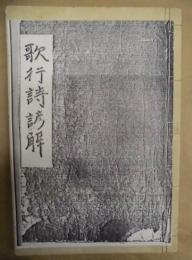 歌行詩諺解